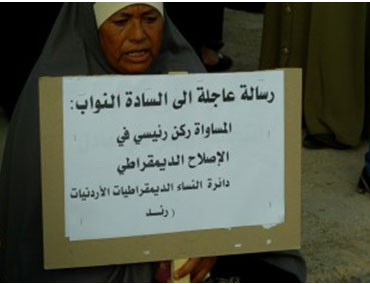 رسالة عاجلة الى السادة النواب:
المساواة ركن رئيسي في
الإصلاح الديمقراطي
دائرة النساء الديمقراطيات الأردنيات
( رند